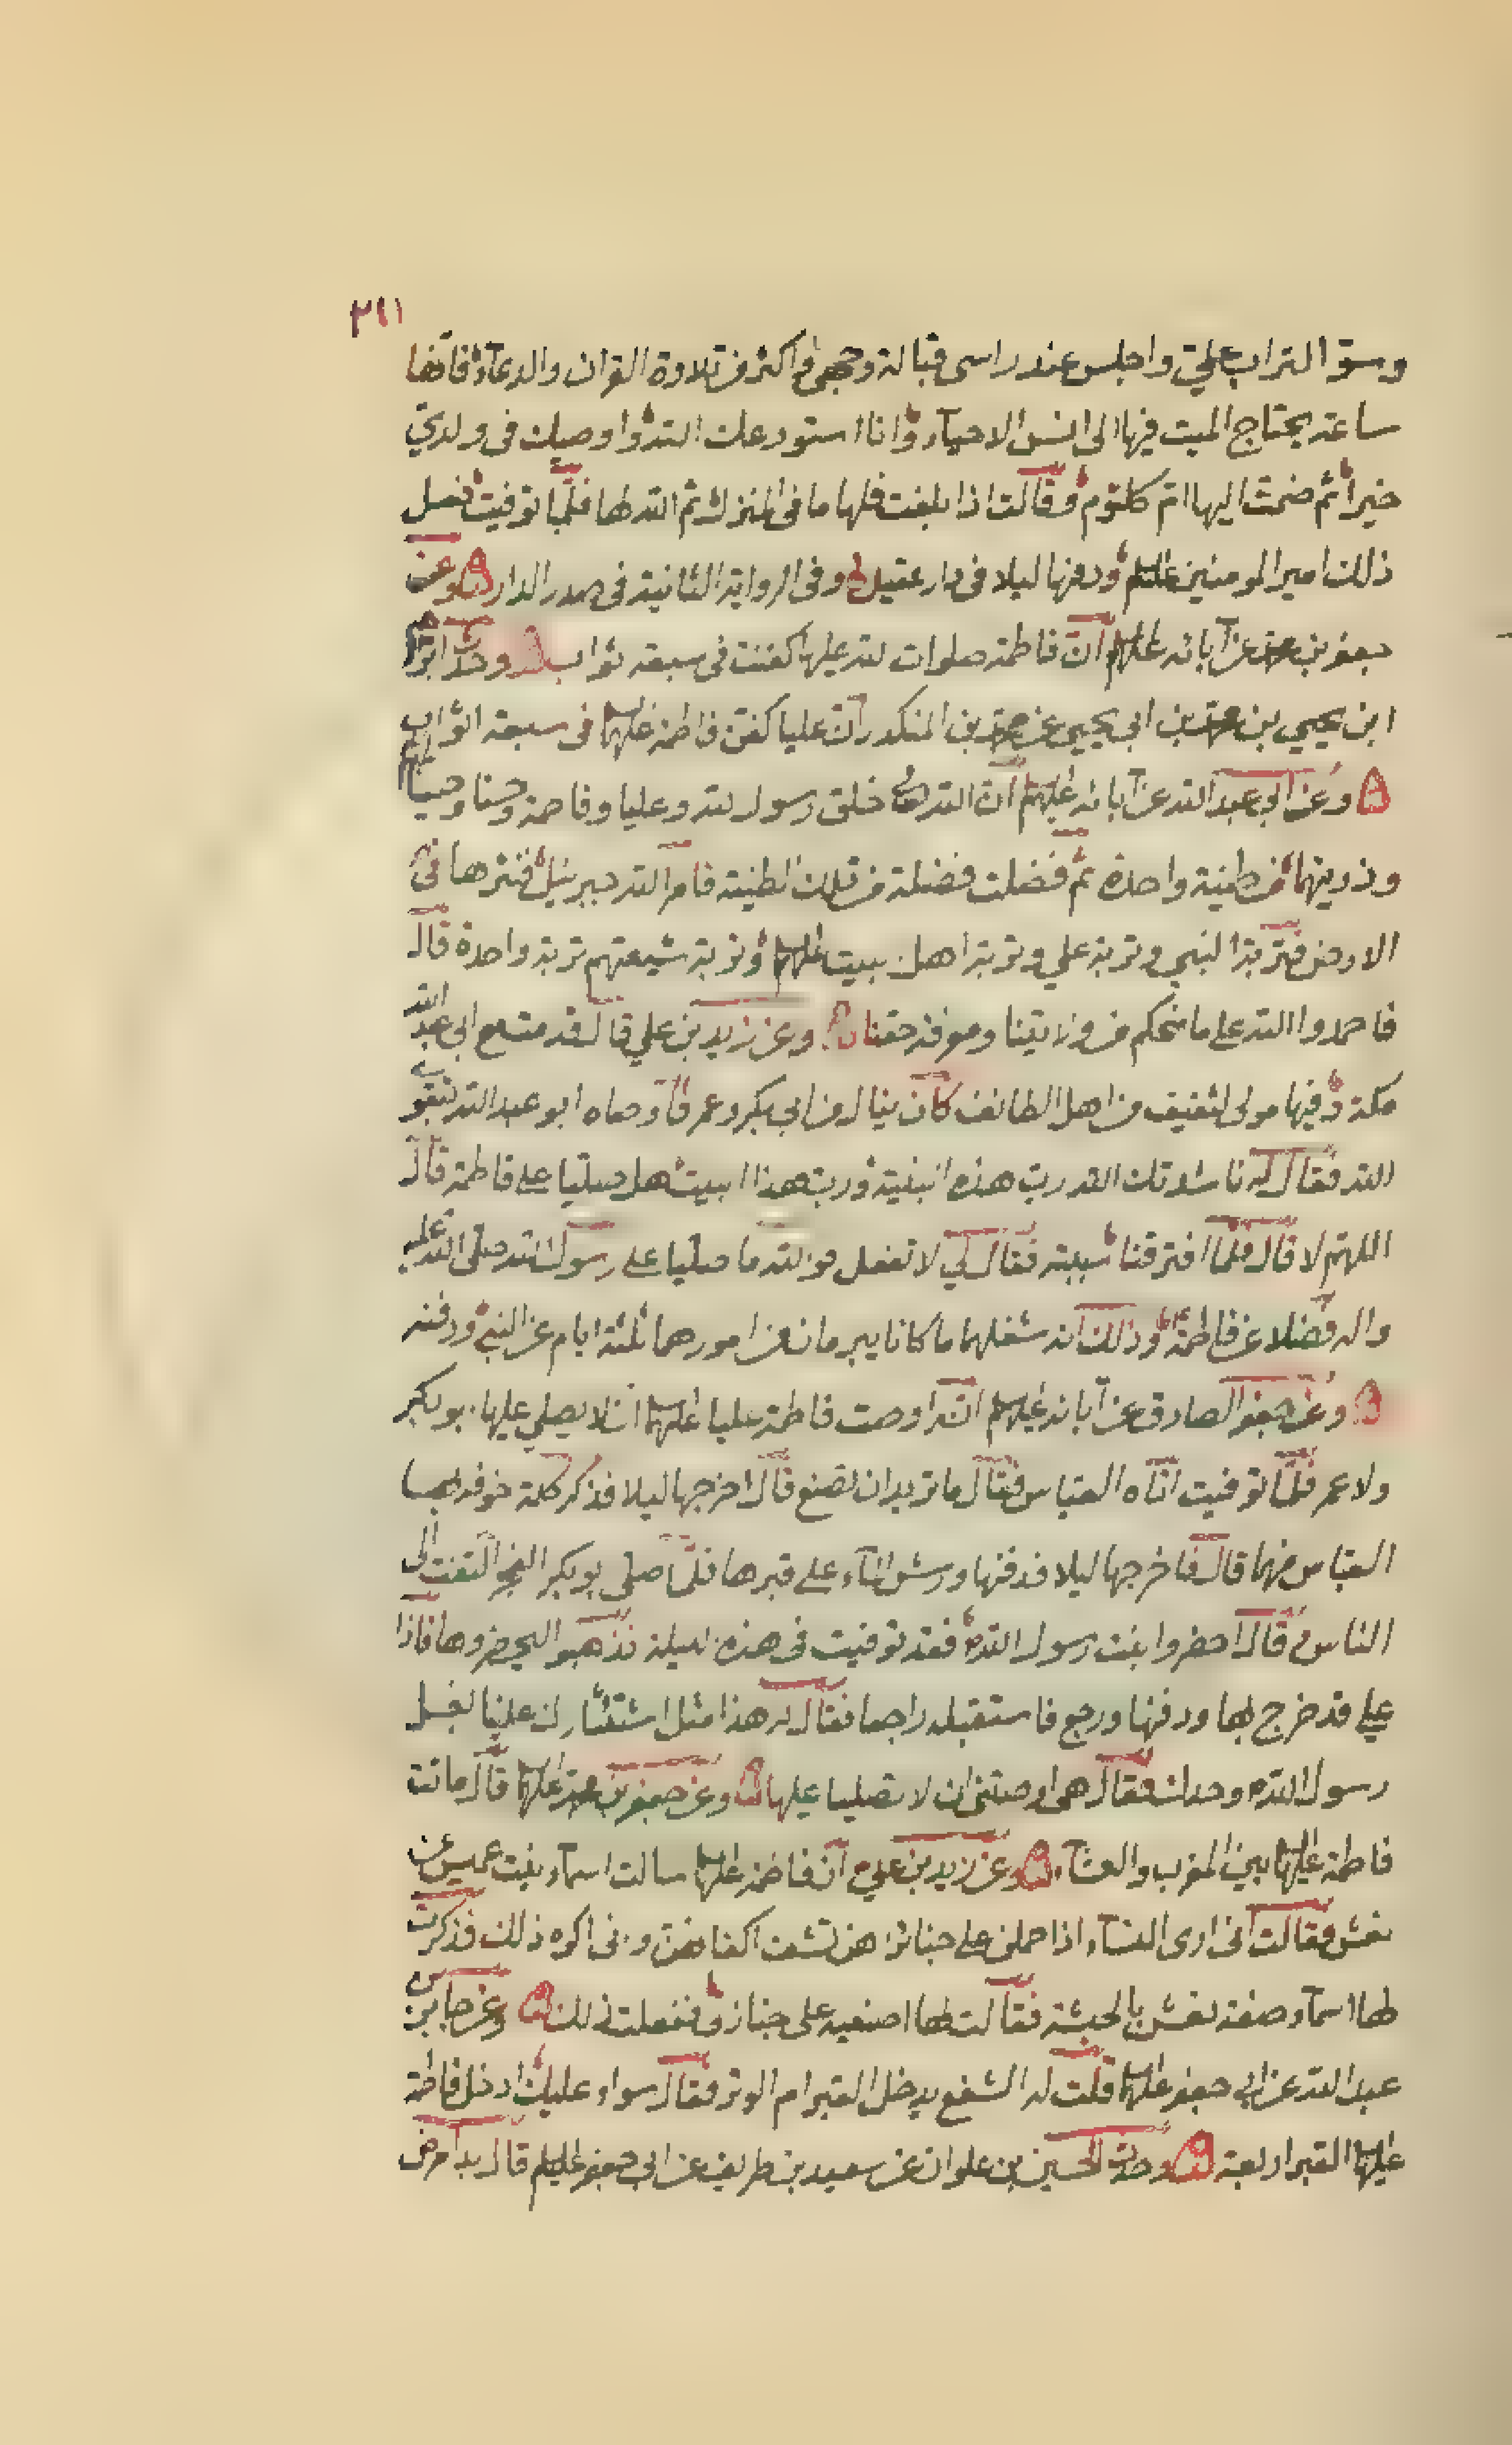 ٣٤١
وسوّ التراب عليّ واجلس عند راسي قبالة وجهي واكثر من تلاوة القران والدعاء فانها
ساعة يحتاج الميت فيها الى انس الاحياء وانا استودعك الله واوصيك في ولديّ
خيرا ثم ضمت اليها ام كلثوم وقالت اذا بلغت فلها ما في المنزل ثم الله لها فلما توفيت فعل
ذلك امير المومنين عليلم ودفنها ليلا في دار عقيل وفي الرواية الثانية في صدر الدار وعن
جعفر بن محمد عن آبائه عليهم ان فاطمة صلوات الله عليها كفنت في سبعة اثواب وحدث ابراهيم
ابن يحيي بن محمد بن ابي يحيي عن محمد بن المنكدر ان عليا كفن فاطمة عليها في سبعة اثواب
وعن ابي عبد الله عن آبائه عليهم ان الله خلق رسول الله وعليا وفاطمة وحسنا وحسينا عليهم
وذريتهما من طينة واحدة ثم فضلت فضلة من تلك الطينة فامر الله جبرئيل فنثرها في
الارض فتربة النبي وتربة علي وتربة اهل بيته عليهم وتربة شيعتهم تربة واحدة قال
فاحمدوا الله على ما منحكم من ولايتنا ومعرفة حقنا وعن زيد بن علي قال قدمت مع ابي عبد الله
مكة وفيها مولى لثقيف من اهل الطائف كان ينال من ابي بكر وعمر فاوصاه ابو عبد الله بتقوى
الله فقال له ناشدتك الله رب هذه البنية ورب هذا البيت هل صليا على فاطمة قال
اللهم لا قال فلما افترقنا سببته فقال لي لا تفعل فوالله ما صليا على رسول الله صلى الله عليه
واله فضلا عن فاطمة وذلك انه شغلهما ما كانا يبرمان من امورهما ثلثة ايام عن النبي ودفنه
وعن جعفر الصادق عن آبائه عليهم انه اوصت فاطمة عليا عليهما ان لا يصلي عليها ابو بكر
ولا عمر فلما توفيت اتاه العباس فقال ما تريد ان تصنع قال اخرجها ليلا فذكر كلمة خوفه بها
العباس منهما قال فاخرجها ليلا فدفنها ورش الماء على قبرها فلما صلى ابو بكر الفجر التفت الى
الناس فقال احضروا بنت رسول الله فقد توفيت في هذه الليلة فذهبوا ليحضروها فاذا
علي قد خرج بها ودفنها ورجع فاستقبله راجعا فقال له هذا مثل استئثارك علينا بغسل
رسول الله وحدك فقال هي اوصتني ان لا تصليا عليها وعن جعفر بن محمد عليهما قال ماتت
فاطمة عليها بين المغرب والعشاء وعن زيد بن علي ان فاطمة عليها سالت اسماء بنت عميس عن
نعش فقالت اني ارى النساء اذا حملن على جنائزهن تشف اكفانهن واني اكره ذلك فذكرت
لها اسماء صفة نعش بالحبشة فقالت لها اصنعيه على جنازتي ففعلت ذلك وعن جابر بن
عبد الله عن ابي جعفر عليهما قلت له الشفع يدخل القبر ام الوتر فقال سواء عليك ادخل فاطمة
عليها القبر اربعة وحدث الحسين بن علوان عن سعيد بن طريف عن ابي جعفر عليلم قال بدا مرض